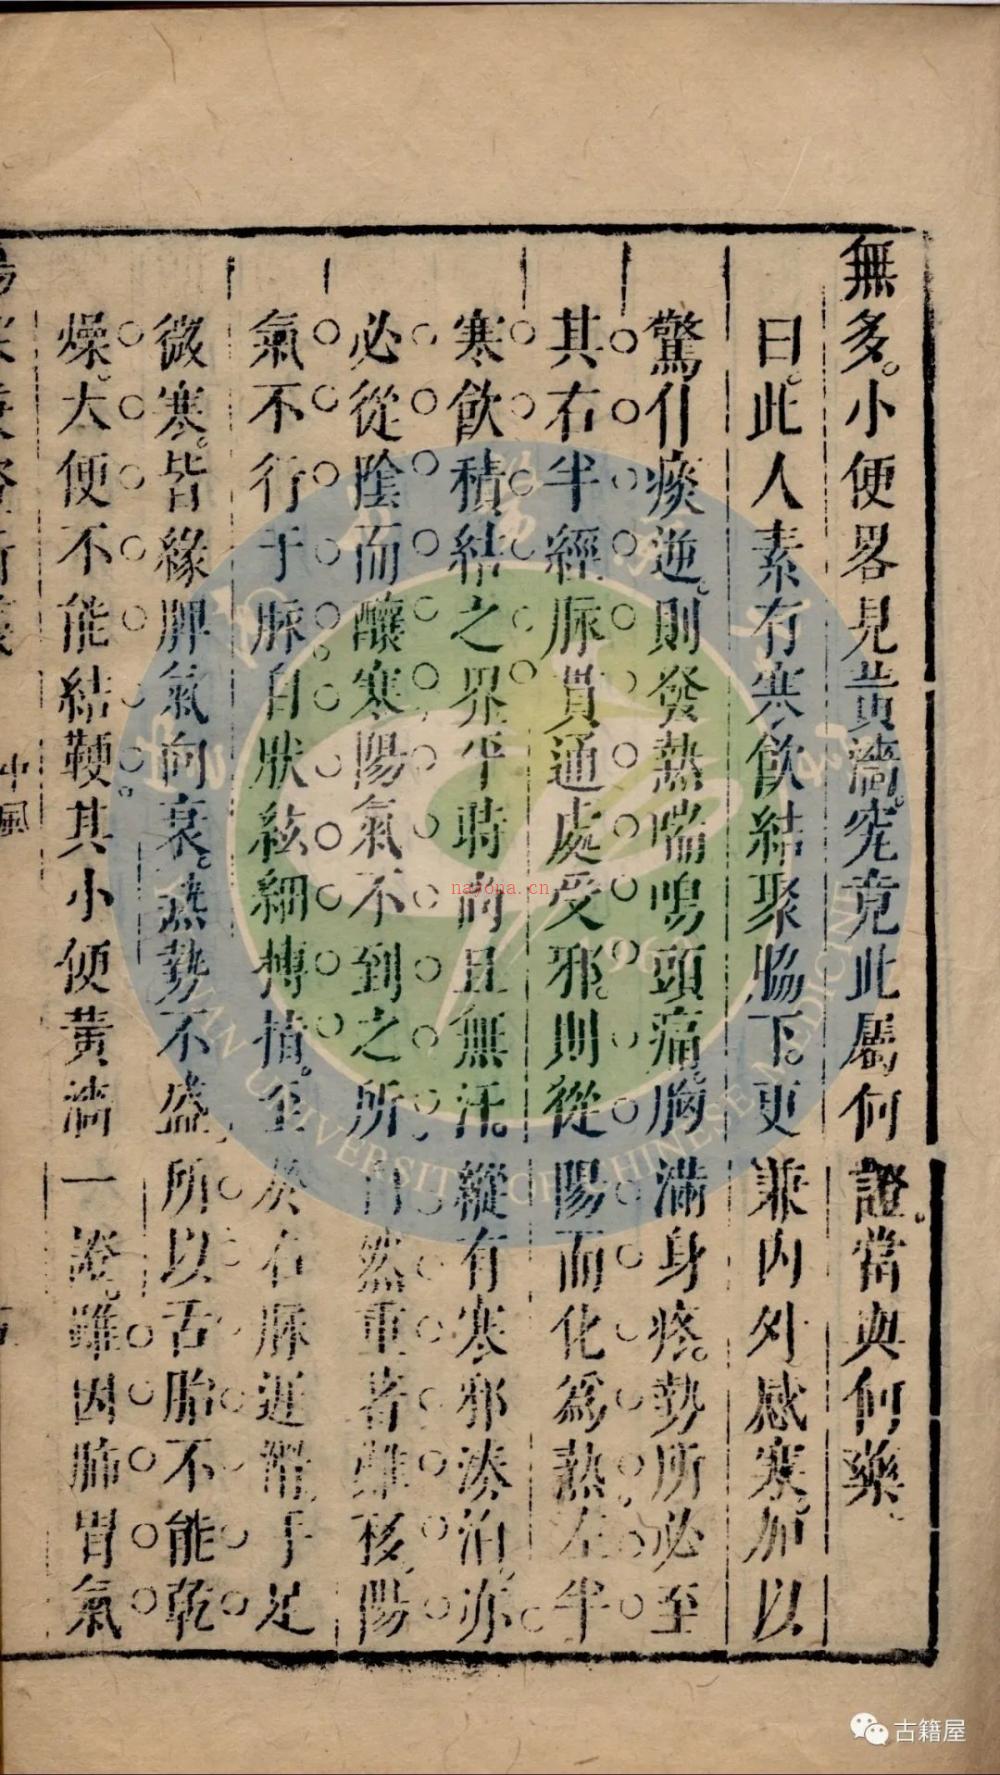 無多。小便畧見黃濇。究竟此屬何證。當與何藥。
曰。此人素有寒飲結聚脇下。更兼內外感寒。加以
驚仆痰逆。則發熱喘鳴頭痛。胸滿身疼。勢所必至
其右半經脈貫通處受邪。則從陽而化爲熱。左半
寒飲積結之界。平時尚且無汗。縱有寒邪湊泊。亦
必從陰而釀寒。陽氣不到之所。自然重著難移。陽
氣不行于脈。自狀絃細摶指。至於右脈遲滑。手足
微寒。皆緣脾氣向衰。熱勢不盛。所以舌胎不能乾
燥。大便不能結鞕。其小便黃濇一證。雖因肺胃氣
中風
古籍屋
nayona.cn
UNIVERSITY OF CHINESE MEDICINE